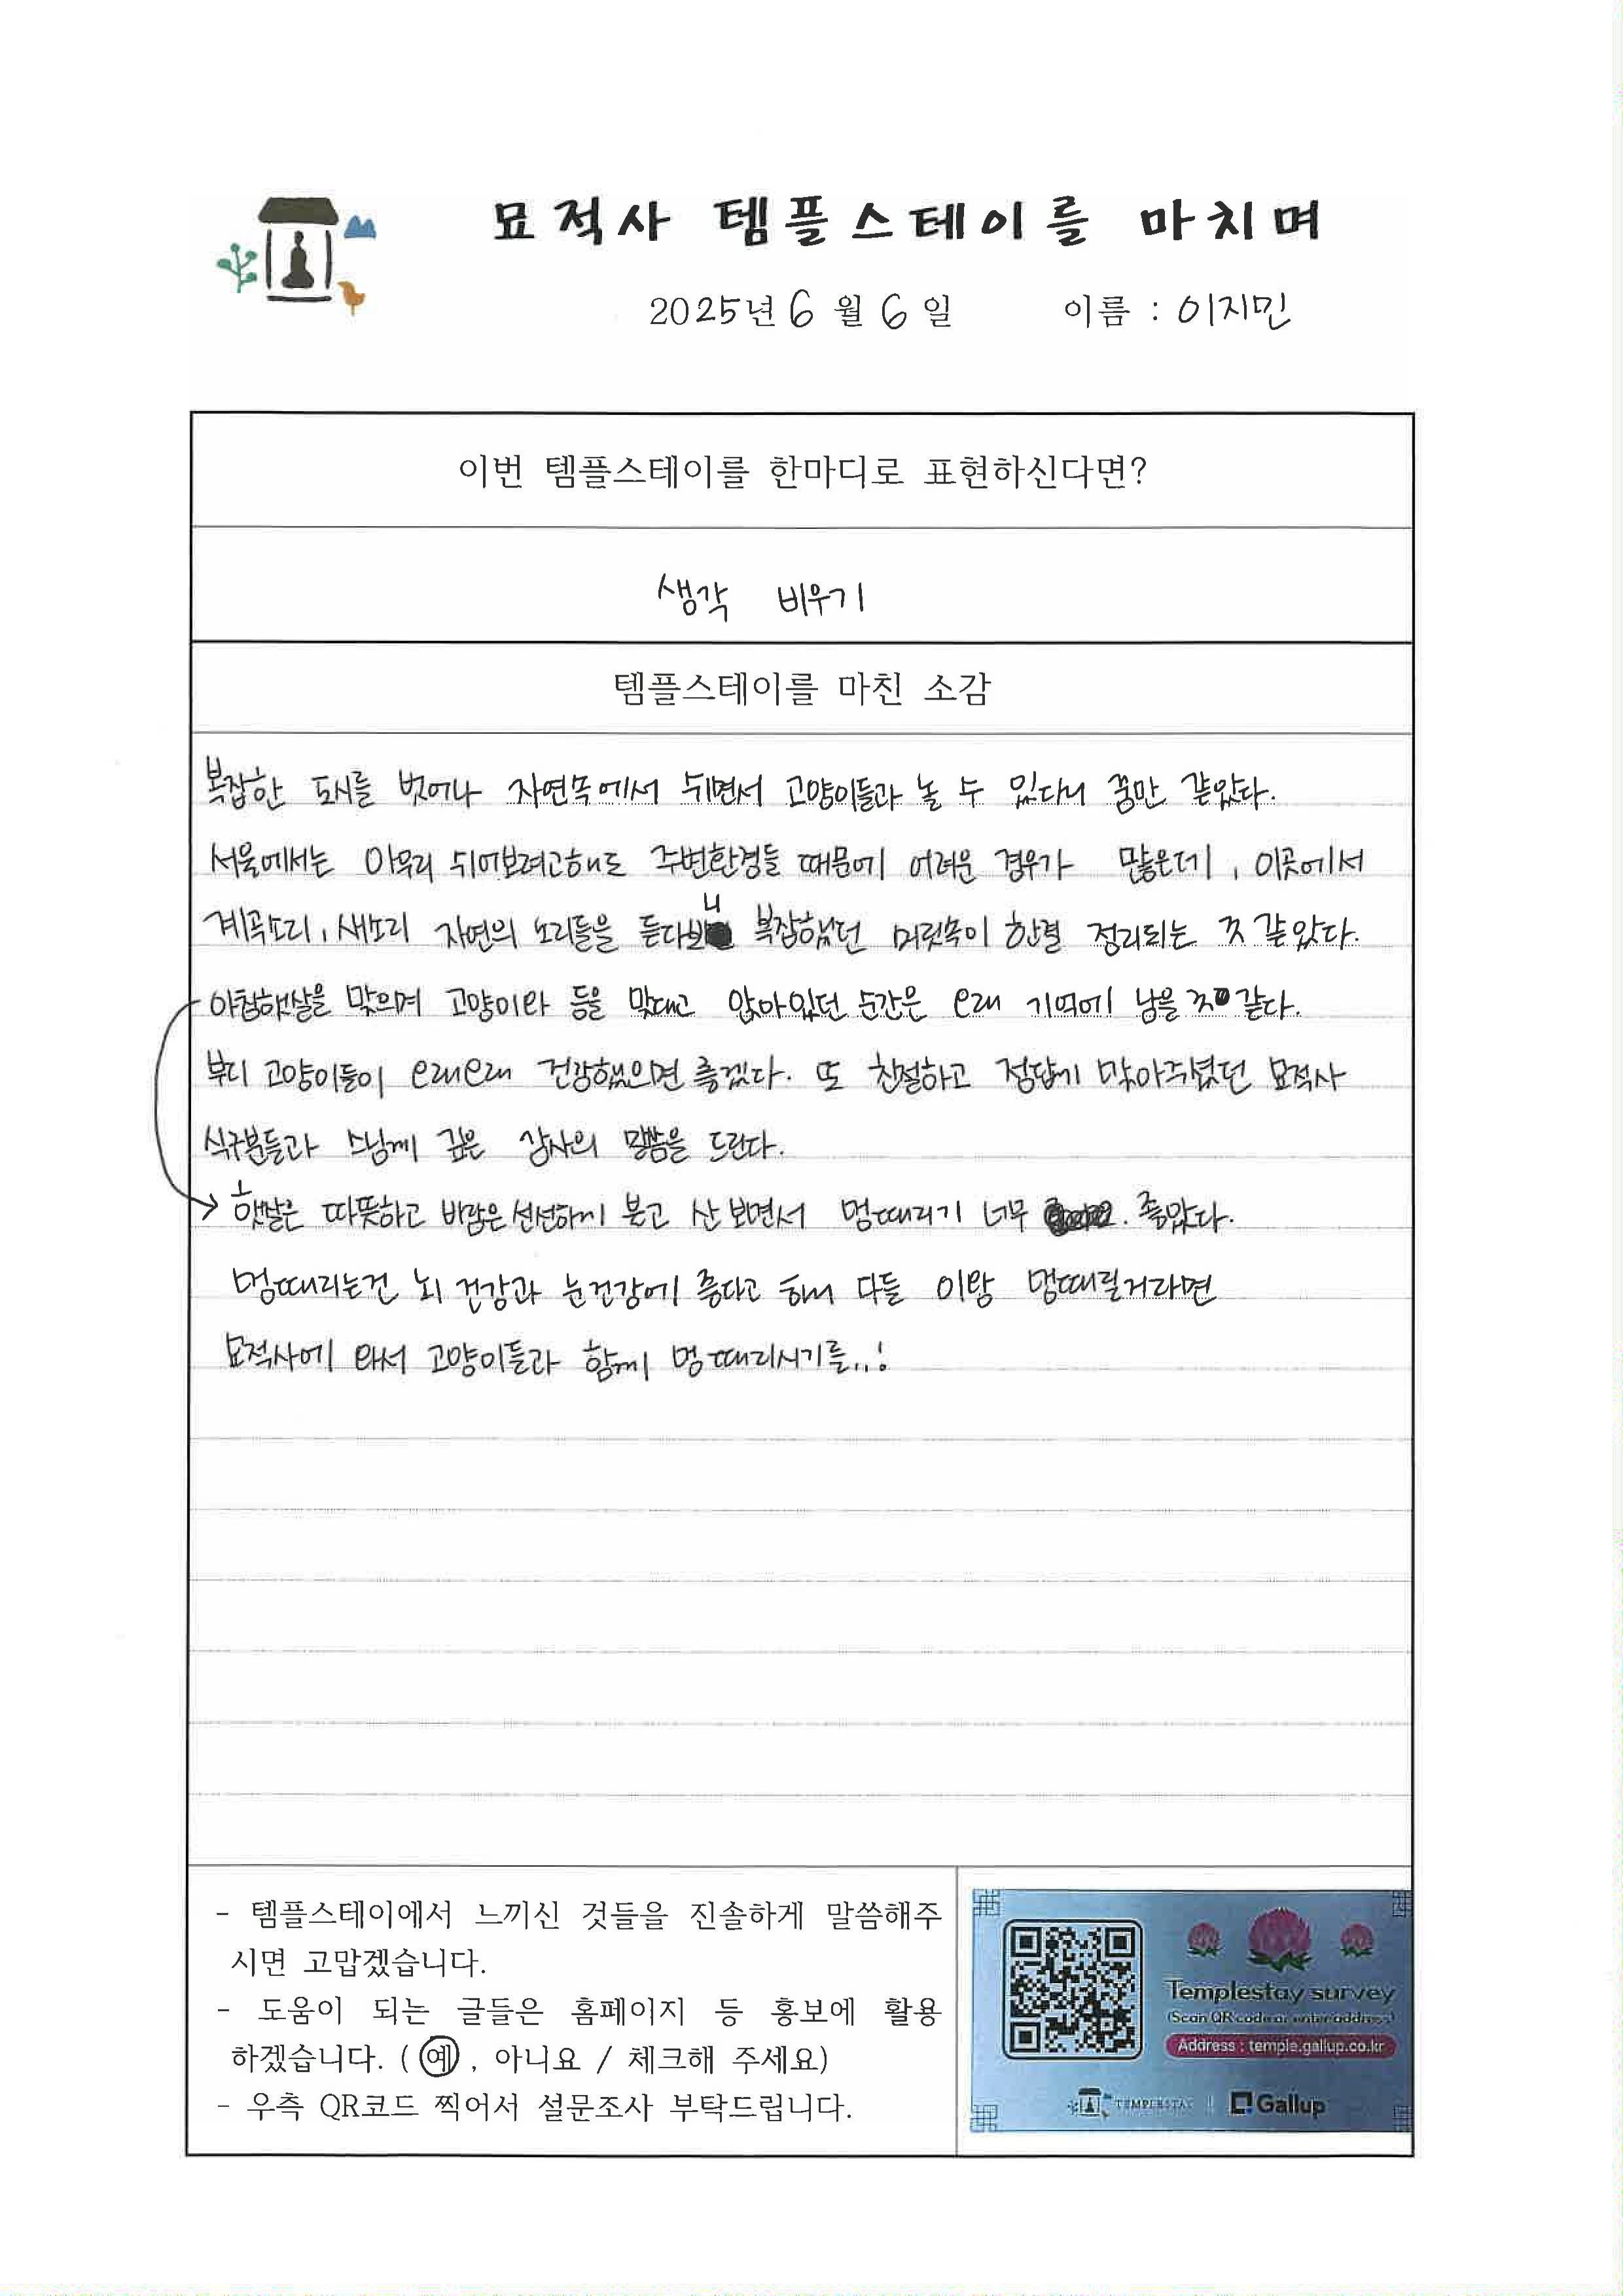 묘적사 템플스테이를 마치며
2025년 6월 6일 이름 : 이지민
이번 템플스테이를 한마디로 표현하신다면?
생각 비우기
템플스테이를 마친 소감
복잡한 도시를 벗어나 자연속에서 쉬면서 고양이들과 놀 수 있다니 꿈만 같았다.
서울에서는 아무리 쉬어보려고해도 주변환경들 때문에 어려운 경우가 많은데, 이곳에서
계곡소리, 새소리 자연의 소리들을 듣다보니 복잡했던 머릿속이 한결 정리되는 것 같았다.
아침햇살을 맞으며 고양이와 등을 맞대고 앉아있던 순간은 오래 기억에 남을 것 같다.
부디 고양이들이 오래오래 건강했으면 좋겠다. 또 친절하고 정답게 맞아주셨던 묘적사
식구분들과 스님께 깊은 감사의 말씀을 드린다.
햇살은 따뜻하고 바람은 선선하게 불고 산 보면서 멍때리기 너무 좋았다.
멍때리는건 뇌 건강과 눈건강에 좋다고 해 다들 이왕 멍때릴거라면
묘적사에 와서 고양이들과 함께 멍때리시기를..!
- 템플스테이에서 느끼신 것들을 진솔하게 말씀해주
시면 고맙겠습니다.
- 도움이 되는 글들은 홈페이지 등 홍보에 활용
하겠습니다. ( 예 , 아니요 / 체크해 주세요)
- 우측 QR코드 찍어서 설문조사 부탁드립니다.
Templestay survey
(Scan QR code or enter address)
Address : temple.gallup.co.kr
TEMPLESTAY | Gallup